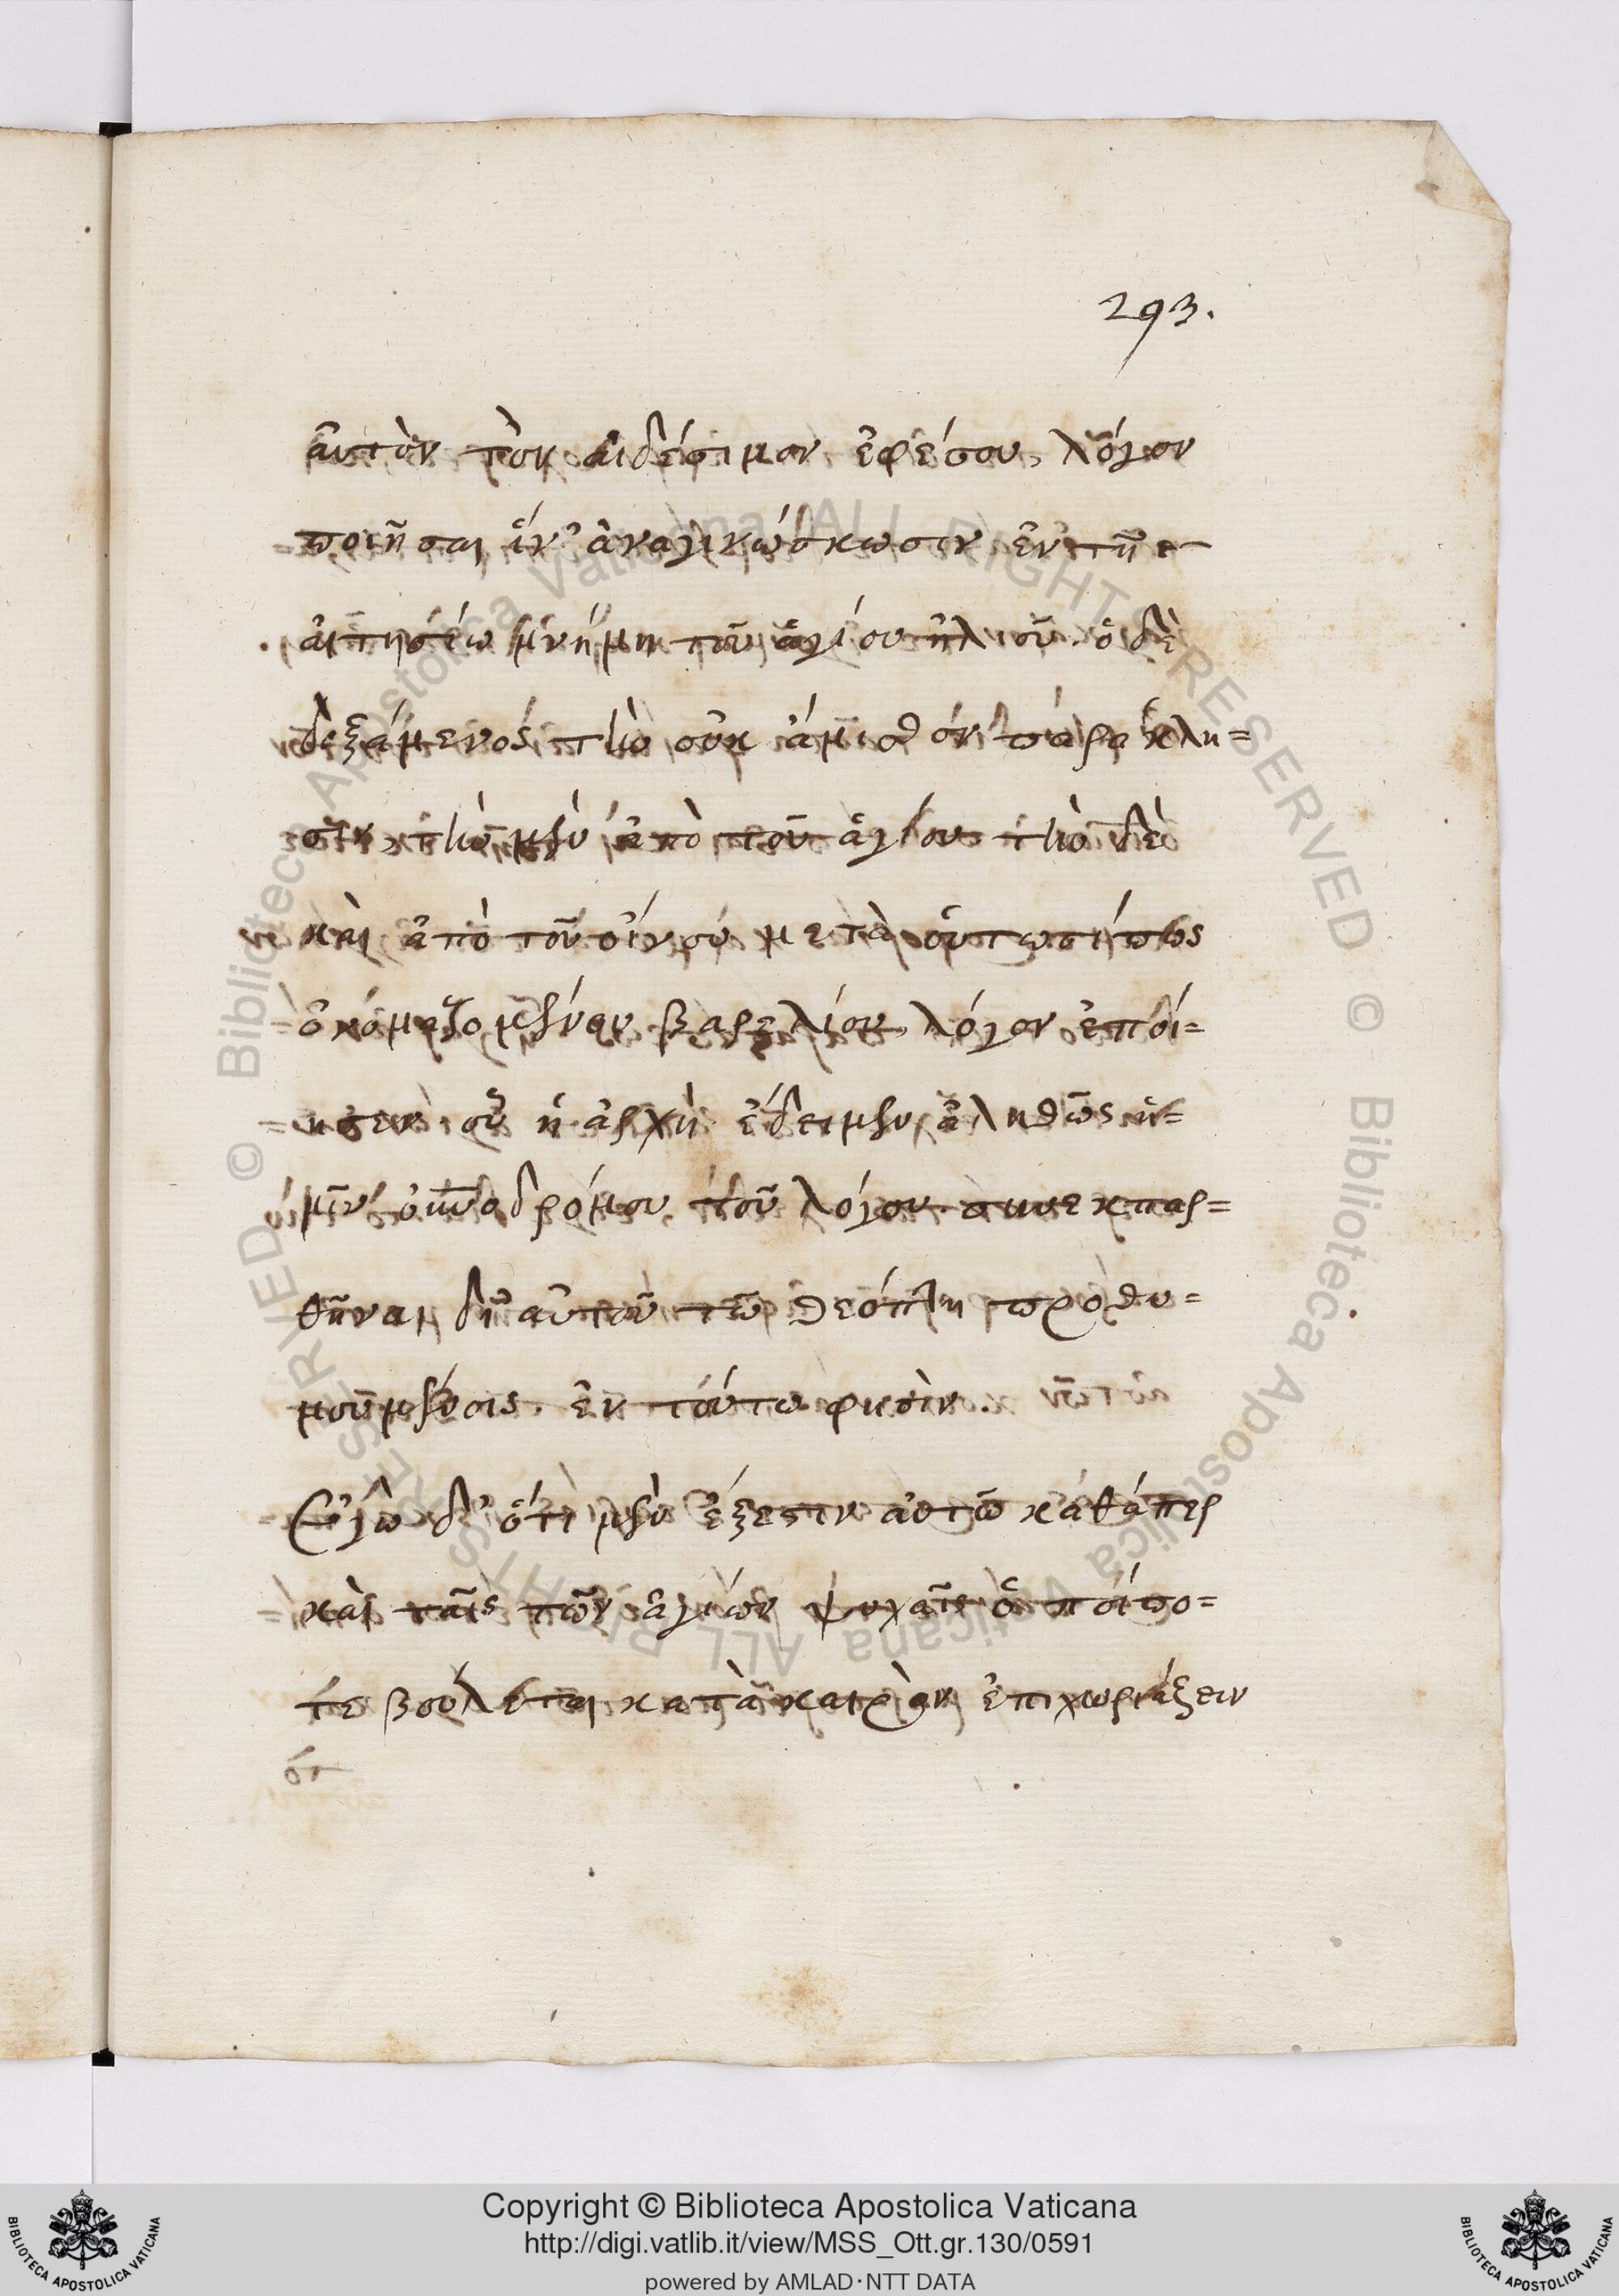 293.
αὐτὸν τὸν αἰδέσιμον ἐφέσου, λόγον
ποιῆσαι ἵν' ἀναγινώσκωσιν ἐν τῆ ε
μνήμη τοῦ ἁγίου ἠλιοῦ. ὁ δὲ
δεξάμενος τὴν οὐκ ἄμισθον παράκλη=
σιν τὴν μὲν ἀπὸ τοῦ ἁγίου τὴν δὲ
καὶ ἀπὸ τοῦ οἴνου μετὰ οὑτωσίπως
ὀνομαζομένου βαρελίου, λόγον ἐποί=
ησεν οὗ ἡ ἀρχὴ ἔδει μὲν ἀληθῶς ἡ=
μῖν οὐνοδρόμου τοῦ λόγου συνεπαρ=
θῆναι δι' αὐτοῦ τῶ θεόπτη προθυ=
μουμένοις. ἐν τούτω φησὶν.
Ἐγὼ δ' ὅτι μὲν ἔξεστιν αὐτῶ καθάπερ
καὶ ταῖς τῶν ἁγίων ψυχαῖς ὅποι πο=
τε βούλεται κατὰ καιρὸν ἐπιχωριάζειν
ὅτ
Copyright © Biblioteca Apostolica Vaticana
http://digi.vatlib.it/view/MSS_Ott.gr.130/0591
powered by AMLAD·NTT DATA
BIBLIOTECA APOSTOLICA VATICANA
BIBLIOTECA APOSTOLICA VATICANA
© Biblioteca Apostolica Vaticana ALL RIGHTS RESERVED
© Biblioteca Apostolica Vaticana ALL RIGHTS RESERVED